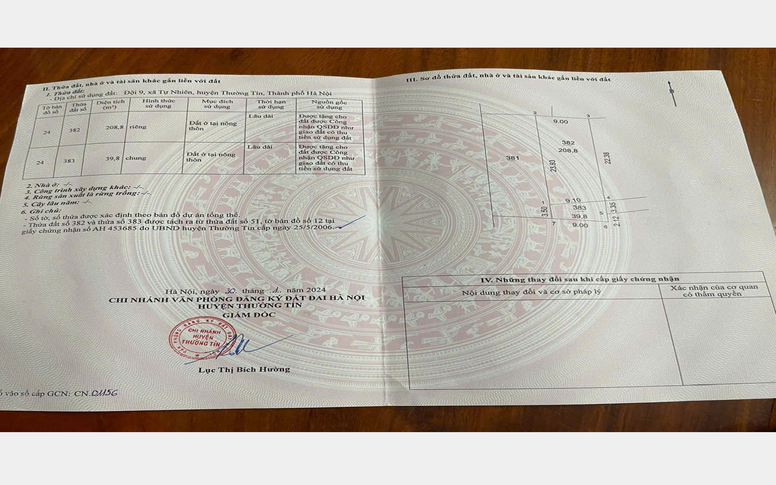 II. Thửa đất, nhà ở và tài sản khác gắn liền với đất
1. Thửa đất:
- Địa chỉ sử dụng đất: Đội 9, xã Tự Nhiên, huyện Thường Tín, Thành phố Hà Nội
Tờ bản đồ số Thửa đất số Diện tích (m²) Hình thức sử dụng Mục đích sử dụng Thời hạn sử dụng Nguồn gốc sử dụng
24 382 208,8 riêng Đất ở tại nông thôn Lâu dài Được tặng cho đất được Công nhận QSDĐ như giao đất có thu tiền sử dụng đất
24 383 39,8 chung Đất ở tại nông thôn Lâu dài Được tặng cho đất được Công nhận QSDĐ như giao đất có thu tiền sử dụng đất
2. Nhà ở: -/-
3. Công trình xây dựng khác: -/-
4. Rừng sản xuất là rừng trồng: -/-
5. Cây lâu năm: -/-
6. Ghi chú:
- Số tờ, số thửa được xác định theo bản đồ dự án tổng thể
- Thửa đất số 382 và thửa số 383 được tách ra từ thửa đất số 51, tờ bản đồ số 12 tại
giấy chứng nhận số AH 453685 do UBND huyện Thường Tín cấp ngày 25/5/2006.
Hà Nội, ngày 30 tháng 1 năm 2024
CHI NHÁNH VĂN PHÒNG ĐĂNG KÝ ĐẤT ĐAI HÀ NỘI
HUYỆN THƯỜNG TÍN
GIÁM ĐỐC
CHI NHÁNH
HUYỆN
THƯỜNG TÍN
Lục Thị Bích Hường
vào sổ cấp GCN: CN.01156
III. Sơ đồ thửa đất, nhà ở và tài sản khác gắn liền với đất
9.00
382
208,8
381
23.93
22.38
9.10
383
39,8
3.50
2.12
1.35
7
9.00
IV. Những thay đổi sau khi cấp giấy chứng nhận
Nội dung thay đổi và cơ sở pháp lý
Xác nhận của cơ quan
có thẩm quyền